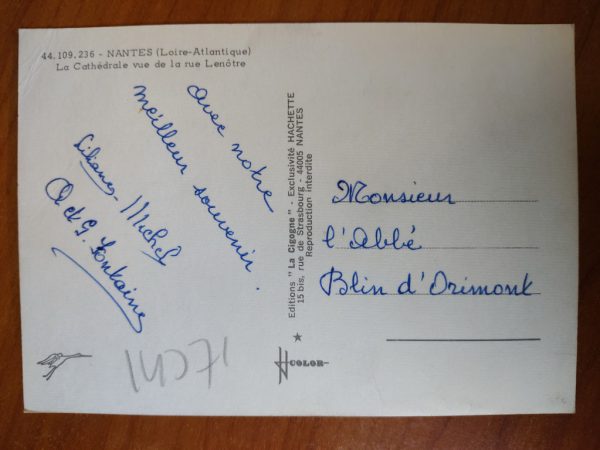 44.109.236 - NANTES (Loire-Atlantique)
La Cathédrale vue de la rue Lenôtre
avec notre
meilleur souvenir.
Liliane, Michel
A et G. Fontaine
Editions "La Cigogne" - Exclusivité HACHETTE
15 bis, rue de Strasbourg - 44005 NANTES
Reproduction interdite
Monsieur
l'Abbé
Blin d'Orimont
COLOR